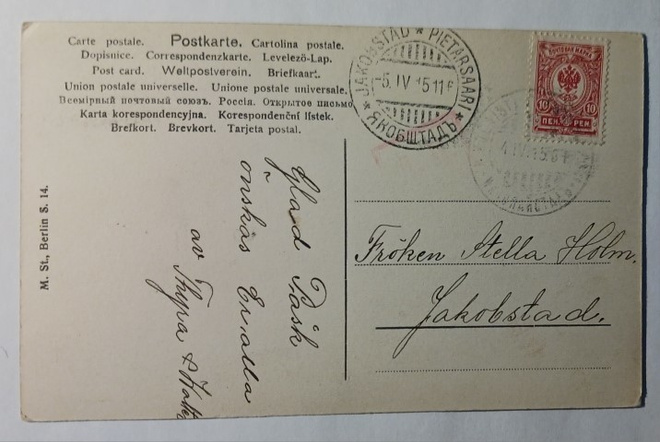 Carte postale. Postkarte. Cartolina postale.
Dopisnice. Correspondenzkarte. Levelező-Lap.
Post card. Weltpostverein. Briefkaart.
Union postale universelle. Unione postale universale.
Всемірный почтовый союзъ. Россія. Открытое письмо
Karta korespondencyjna. Korespondenční lístek.
Brefkort. Brevkort. Tarjeta postal.
M. St., Berlin S. 14.
JAKOBSTAD * PIETARSAARI
-5.IV.15 11
* ЯКОБШТАДЪ *
ПОЧТОВАЯ МАРКА
10 10
ПЕН. PEN.
Glad Påsk
önskas Er alla
av Thyra &
Fröken Stella Holm.
Jakobstad.